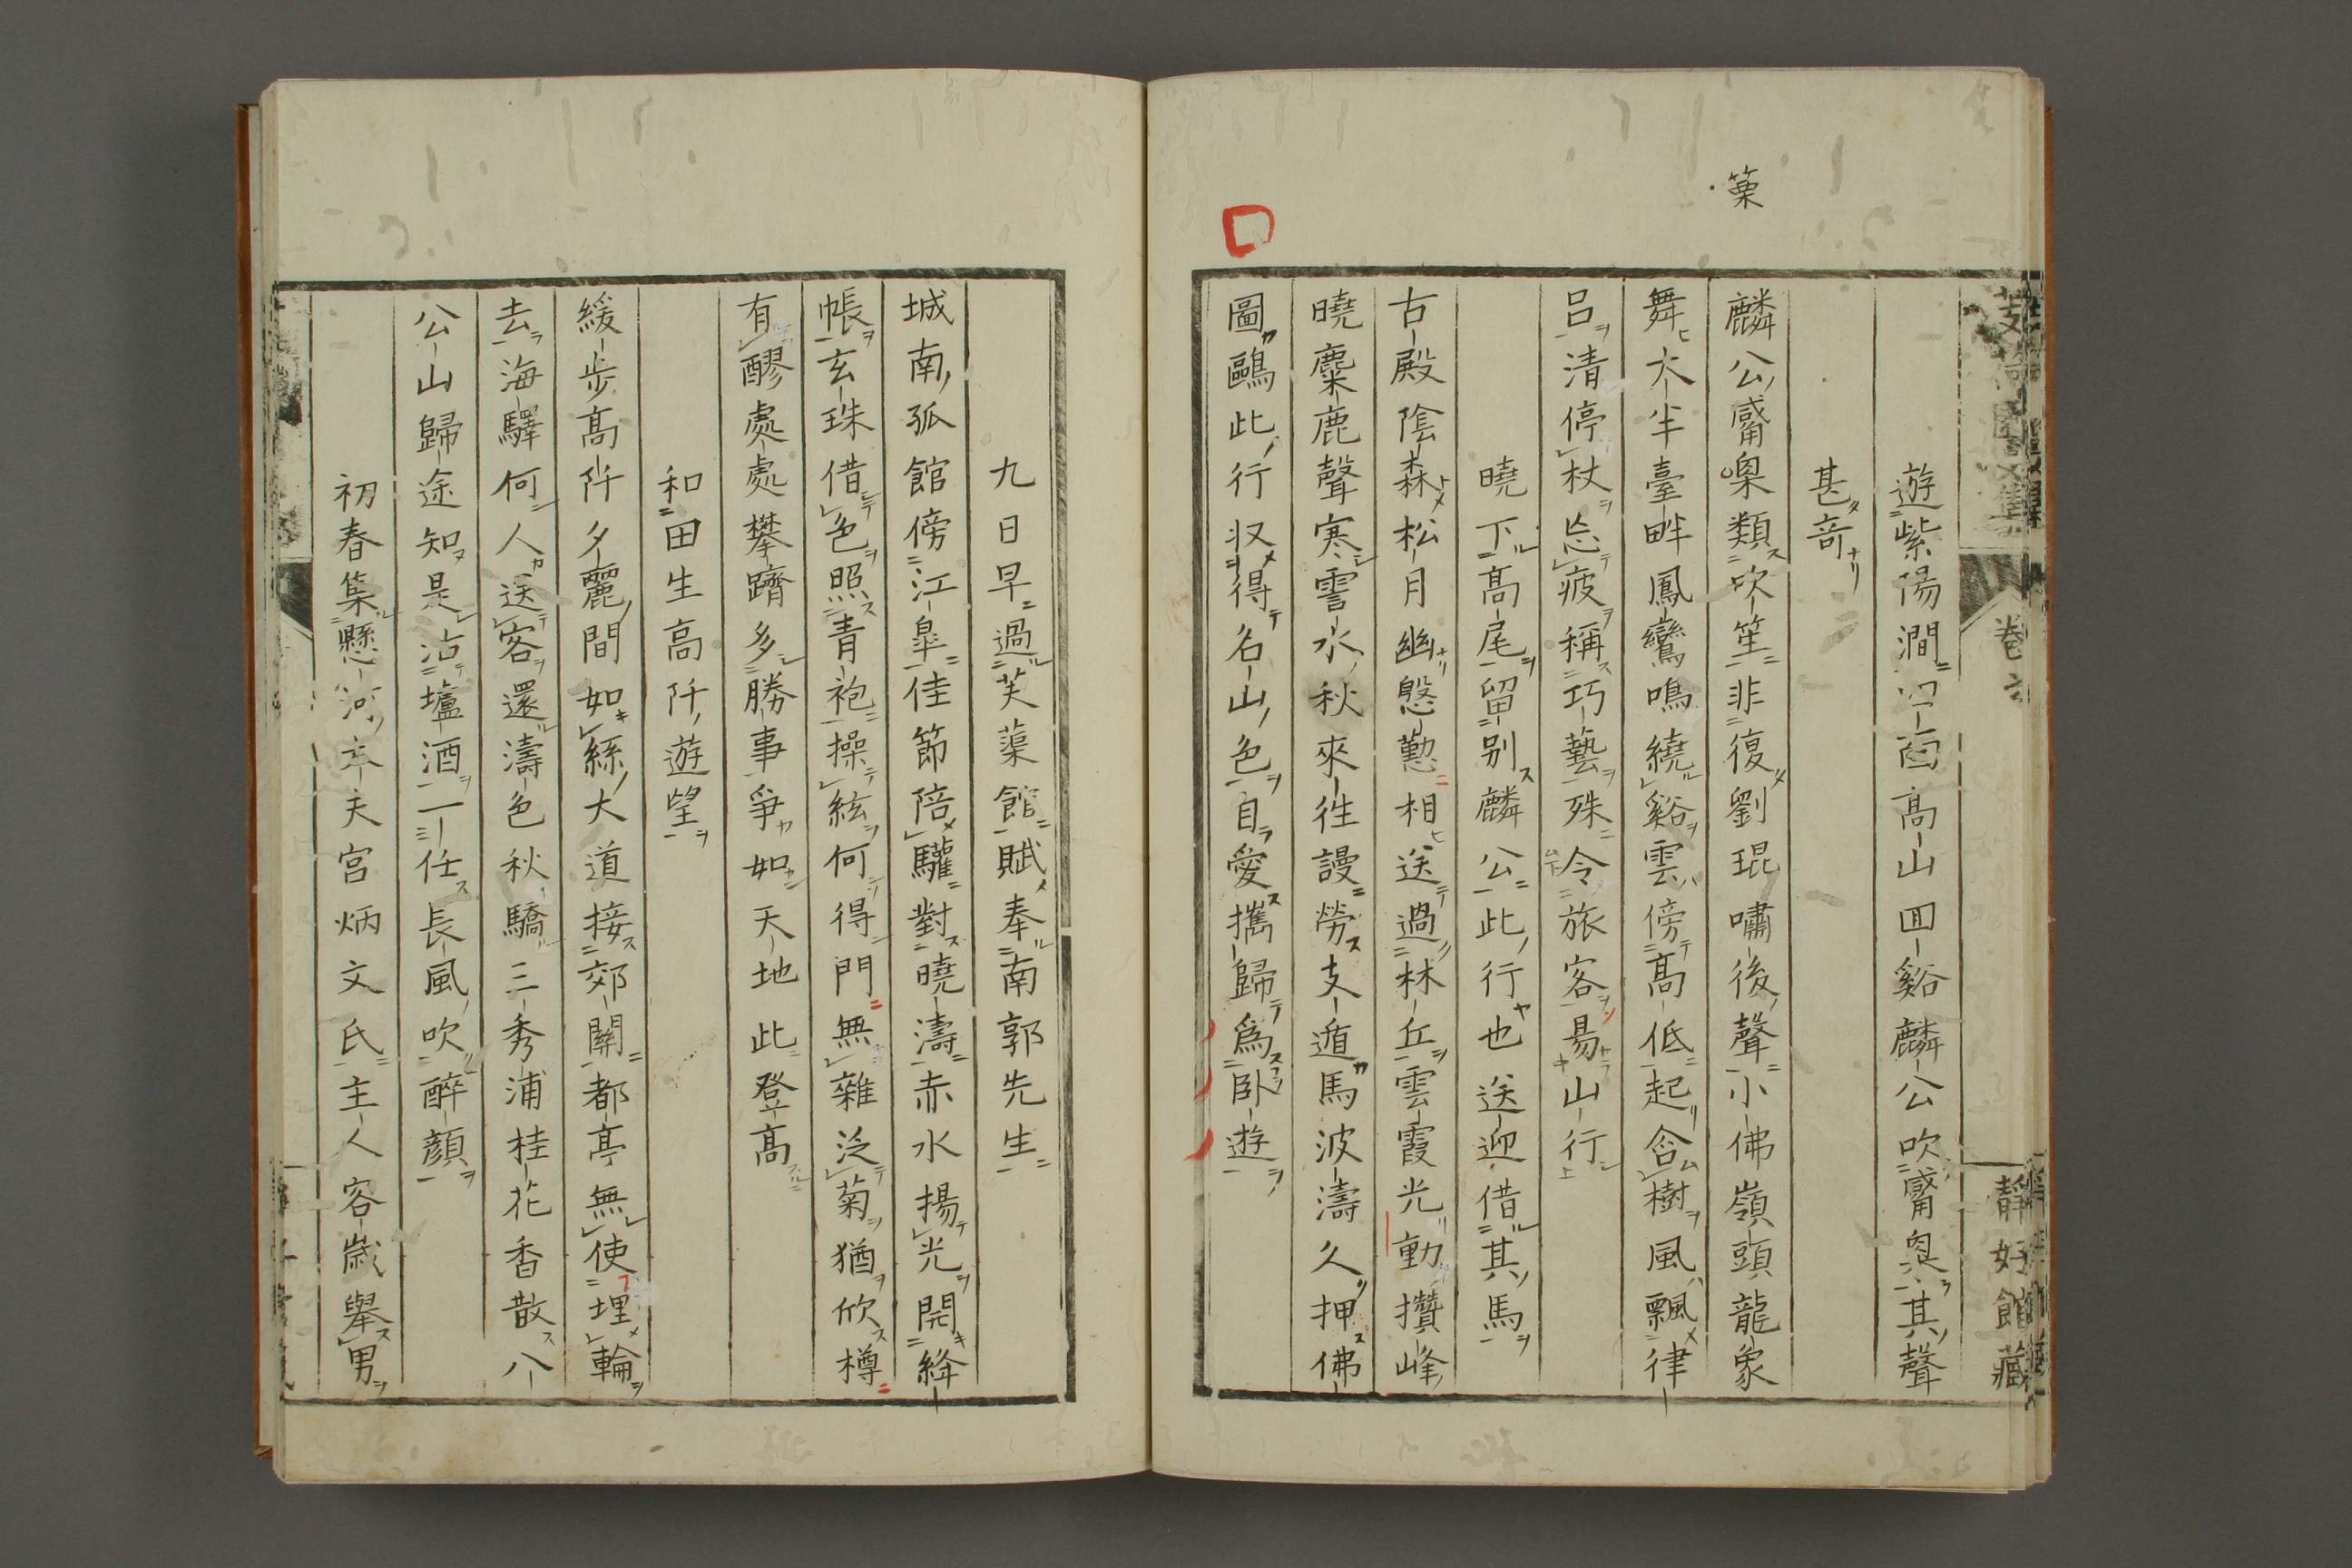 篥
遊紫陽澗

高山回谿麟公吹觱㮚其聲
甚竒
麟公觱㮚類吹笙非復劉琨嘯後聲小佛嶺頭龍象
舞大半臺畔鳳鸞鳴繞谿雲傍髙低起含樹風飄律
呂清停杖忘疲稱巧藝殊令旅客易山行
曉下髙尾留別麟公此行也送迎借其馬
古殿陰森松月幽慇懃相送過林丘雲霞光動攢峰
曉麋鹿聲寒雩水秋來徃謾勞支遁馬波濤久押佛
圖鷗此行収得名山色自愛攜歸爲卧遊
卷六
靜好館藏
九日早過芙蕖館賦奉南郭先生
城南孤館傍江臯佳節陪驩對曉濤赤水揚光開絳
帳玄珠借色照青袍操絃何得門無雜泛菊猶欣樽
有醪處處攀躋多勝事爭如天地此登髙
和田生高阡遊望
緩步髙阡夕麗間如絲大道接郊關都亭無使埋輪
去海驛何人送客還濤色秋驕三秀浦桂花香散八
公山歸途知是沽壚酒一任長風吹醉顔
初春集懸河主夫宮炳文氏主人客歳擧男